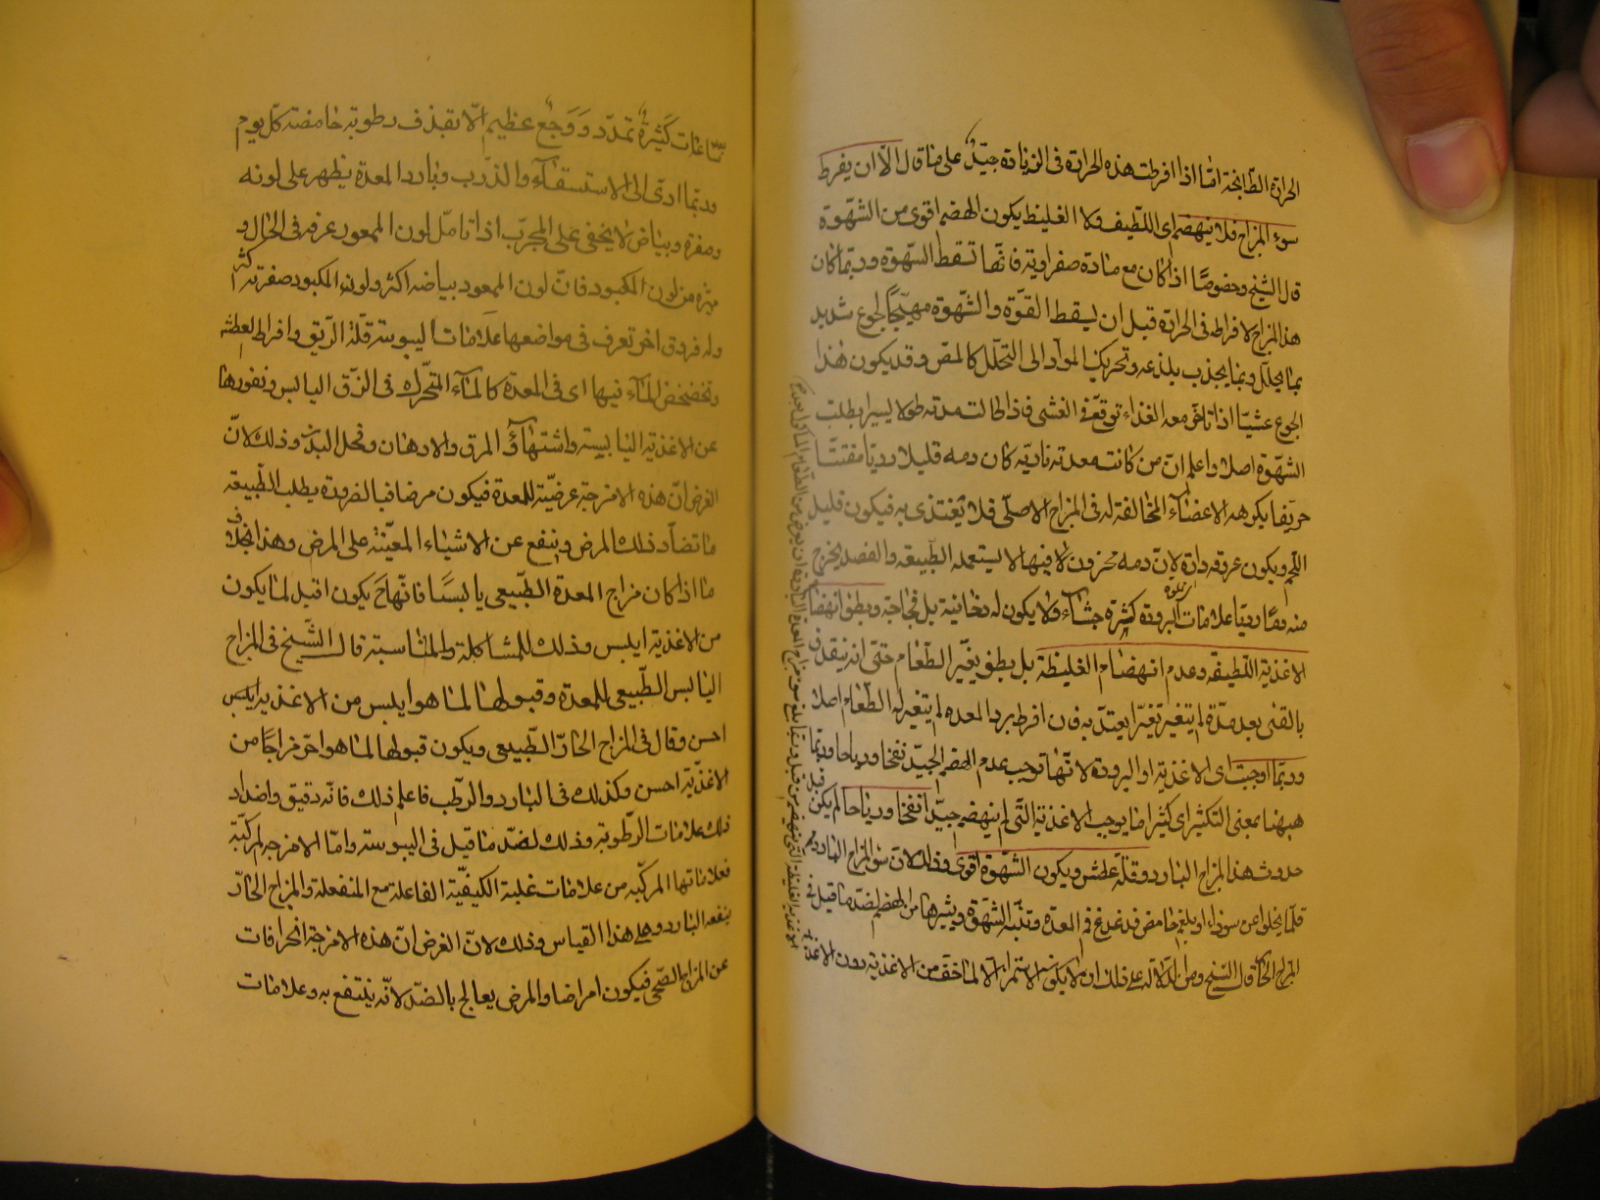 الحرارة الطابخة امّا اذا افرطت هذه الحرارة فى الزيادة جيّد على ما قال الّا ان يفرط
سوء المزاج فلا ينهضم اى اللّطيف ولا الغليظ يكون الهضم اقوى من الشهّوة
قال الشيخ وخصوصًا اذا كان مع مادة صفراوية فانّها تسقط الشّهوة وربّما كان
هذا المزاج لافراطه فى الحرارة قبل ان يسقط القوّة والشّهوة مهيّجًا لجوع شديد
بما يحلّل وبما يجذب بلذعه وتحريك الموادّ الى التحلّل كالمص وقد يكون هذا
الجوع عشيّا اذا تاخّر معه الغذاء توقع فى الغشى فاذا طالت مدته طولا يسيرا بطلت
الشهّوة اصلا واعلم انّ من كانت معدته نارية كان دمه قليلا رديّا منتنًا
حريفا يكرهه الاعضاء المخالفة له فى المزاج الاصلّى فلا تغتذى به فيكون قليل
اللّحم ويكون عروقه دارة لانّ دمه مخزون لا فيها لا يستعمله الطّبيعة والفصد يخرج
منه دمًا رديّا علامات البرودة كثرة جشاء ولا يكون له دخانية بل حامضة وبطؤ انهضام
الاغذية اللّطيفة وعدم انهضام الغليظة بل بطؤ تغيّر الطّعام حتّى انه ينقذف
بالقئ بعد مدّة لم يتغيّر تغيّرا يعتدّ به فان افرط برد المعدة لم يتغير له الطّعام اصلا
وربّما اوجبت اى الاغذية او البرودة لانّها توجب عدم الهضم الجيّد نفخا ورياحا وربّما
هيهنا بمعنى التكثير اى كثيرا ما يوجب الاغذية التى لم ينهضم جيّدا نفخا ورياحا لم يكن قبل
حدوث هذا المزاج البارد وقلّة عطش ويكون الشّهوة اقوى وذلك لانّ سوء المزاج البارد
قلّما يخلو عن سوداء او بلغم حامض فدغدغ فم المعدة وتنبّه الشّهوة ويثيرها من الهضم لضدّ ما قيل فى
المزاج الحارّ قال الشيخ ومن الدّلالة على ذلك ان لا يكون الاستمراء الّا لما خفّ من الاغذية دون الاغذية
ساعات كثيرة تمدّد ووجع عظيم الّا تقذف رطوبة حامضة كلّ يوم
وربما ادّى الى الاستسقاء والذّرب وبارد المعدة يظهر على لونه
وصفرة وبياض لا يخفى على المجرّب اذا تامّل لون الممعود عرفه فى الحال و
ميّزه من لون المكبود فانّ لون الممعود بياضه اكثر ولون المكبود صفرته اكثر
وله فروق اخر تعرف فى مواضعها علامات اليبوسة قلّة الرّيق وافراط العطش
وتخضخض الماء فيها اى فى المعدة كالماء المتحّرك فى الزّق اليابس ونفورها
عن الاغذية اليابسة واشتهاء المرق والادهان ونحل البدن وذلك لانّ
الفرض انّ هذه الامزجة عرضيّة للمعدة فيكون مرضا فبالضرورة يطلب الطّبيعة
ما تضادّ ذلك المرض وينفع عن الاشياء المعينة على المرض وهذا بخلاف
ما اذا كان مزاج المعدة الطّبيعى يابسًا فانّها ح يكون اقبل لما يكون
من الاغذية ايبس وذلك للمشاكلة والمناسبة قال الشّيخ فى المزاج
اليابس الطّبيعى للمعدة وقبولها لما هو ايبس من الاغذية ايبس
احسن وقال فى المزاج الحارّ الطّبيعى ويكون قبولها لما هو احرّ مزاجًا من
الاغذية احسن وكذلك فى البارد والرّطب فاعلم ذلك فانّه دقيق واضداد
ذلك علامات الرّطوبة وذلك لضدّ ما قيل فى اليبوسة وامّا الامزجة المركّبة
فعلاماتها المركّبة من علامات غلبة الكيفيّة الفاعلة مع المنفعلة والمزاج الحارّ
ينفعه البارد وعلى هذا القياس وذلك لانّ الفرض انّ هذه الامزجة انحرافات
عن المزاج الصّحى فيكون امراضا والمرض يعالج بالضدّ لانّه ينتفع به وعلامات